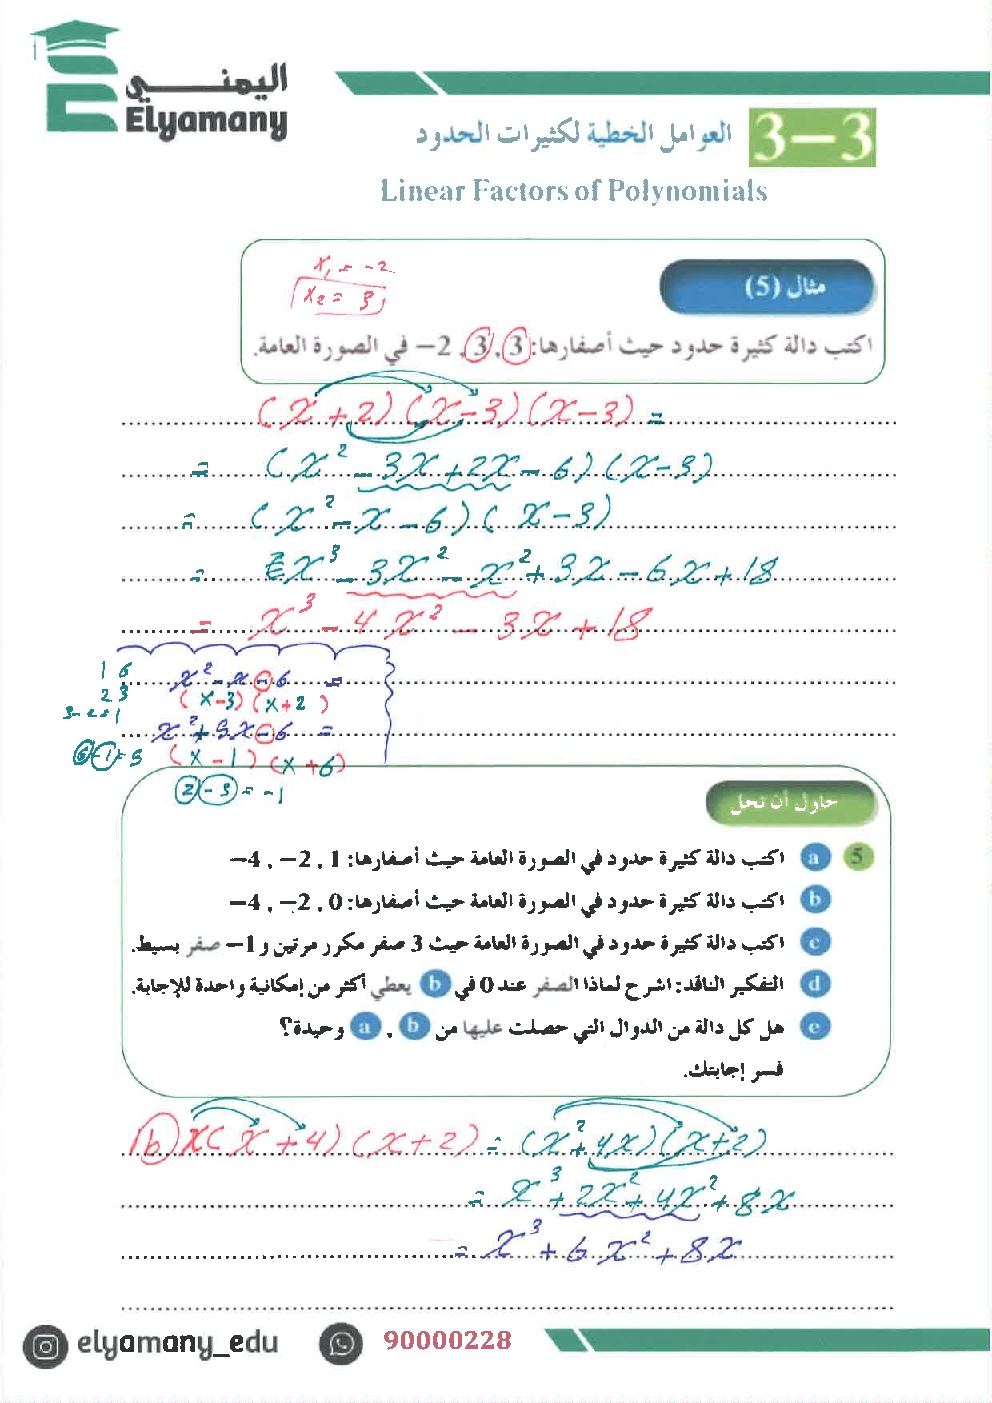 اليمني
Elyamany
3-3
العوامل الخطية لكثيرات الحدود
Linear Factors of Polynomials
x₁ = -2
x₂ = 3
مثال (5)
اكتب دالة كثيرة حدود حيث أصفارها: 3 , 3 , 2− في الصورة العامة.
(x+2)(x-3)(x-3) =
= (x² - 3x + 2x - 6)(x-3)
= (x² - x - 6)(x-3)
= x³ - 3x² - x² + 3x - 6x + 18
= x³ - 4x² - 3x + 18
1 6
2 3
3-2=1
6-1=5
x² - x - 6 =
(x-3)(x+2)
x² + 5x - 6 =
(x-1)(x+6)
2-3=-1
حاول أن تحل
5 a اكتب دالة كثيرة حدود في الصورة العامة حيث أصفارها: 1 , 2− , 4−
b اكتب دالة كثيرة حدود في الصورة العامة حيث أصفارها: 0 , 2− , 4−
c اكتب دالة كثيرة حدود في الصورة العامة حيث 3 صفر مكرر مرتين و 1− صفر بسيط.
d التفكير الناقد: اشرح لماذا الصفر عند 0 في b يعطي أكثر من إمكانية واحدة للإجابة.
e هل كل دالة من الدوال التي حصلت عليها من b , a وحيدة؟
فسر إجابتك.
b) x(x+4)(x+2) = (x²+4x)(x+2)
= x³ + 2x² + 4x² + 8x
= x³ + 6x² + 8x
elyamany_edu
90000228